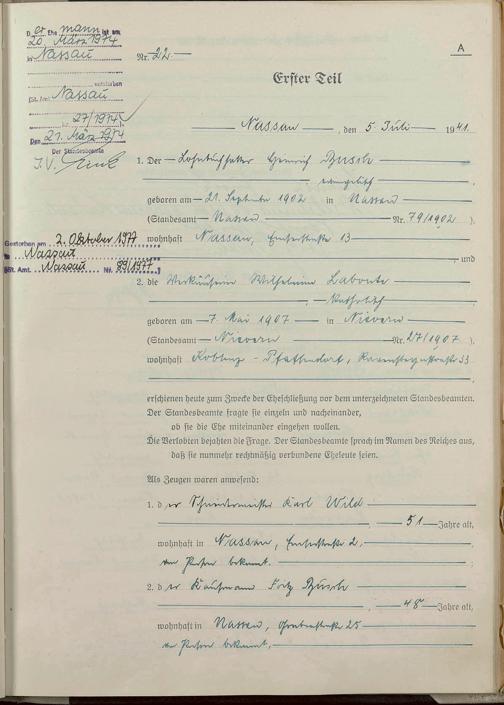 D er Ehe mann ist am
20. März 1974
in Nassau
verstorben
(St. Amt Nassau
Nr. 27/1974)
Den 21. März 1974
Der Standesbeamte
I.V.
Gestorben am 2. Oktober 1977
in Nassau
(St. Amt. Nassau Nr. 99/1977)
A
Nr. 22.
Erster Teil
Nassau, den 5 Juli 1941.
1. Der Lohnbuchhalter Heinrich Busch
, evangelisch
geboren am 21. September 1902 in Nassau
(Standesamt Nassau Nr. 79/1902 ),
wohnhaft Nassau, Emserstraße 13
, und
2. die Verkäuferin Wilhelmine Labonte
, katholisch
geboren am 7. Mai 1907 in Nievern
(Standesamt Nievern Nr. 27/1907 ),
wohnhaft Koblenz - Pfaffendorf, 33
erschienen heute zum Zwecke der Eheschließung vor dem unterzeichneten Standesbeamten.
Der Standesbeamte fragte sie einzeln und nacheinander,
ob sie die Ehe miteinander eingehen wollen.
Die Verlobten bejahten die Frage. Der Standesbeamte sprach im Namen des Reiches aus,
daß sie nunmehr rechtmäßig verbundene Eheleute seien.
Als Zeugen waren anwesend:
1. d er Schreinermeister Karl Wild
, 51 Jahre alt,
wohnhaft in Nassau, Emserstraße 2,
der Person bekannt.
2. d er Kaufmann Fritz Busch
, 48 Jahre alt,
wohnhaft in Nassau, 25
der Person bekannt,